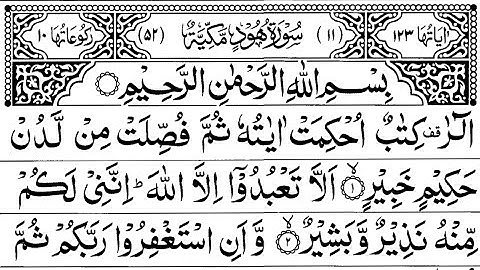 اٰیَاتُهَا ۱۲۳ (۱۱) سُوْرَةُ هُوْدٍ مَّكِّیَّةٌ (۵۲) رُكُوْعَاتُهَا ۱۰
بِسْمِ اللّٰهِ الرَّحْمٰنِ الرَّحِیْمِ
الٓرٰ قف كِتٰبٌ اُحْكِمَتْ اٰیٰتُهٗ ثُمَّ فُصِّلَتْ مِنْ لَّدُنْ
حَكِیْمٍ خَبِیْرٍ ۙ﴿۱﴾ اَلَّا تَعْبُدُوْۤا اِلَّا اللّٰهَ ؕ اِنَّنِیْ لَكُمْ
مِّنْهُ نَذِیْرٌ وَّ بَشِیْرٌ ۙ﴿۲﴾ وَّ اَنِ اسْتَغْفِرُوْا رَبَّكُمْ ثُمَّ